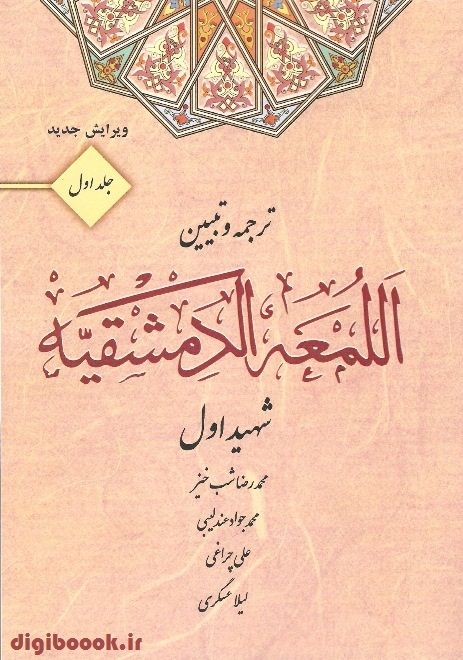 ویرایش جدید
جلد اول
ترجمه و تبیین
اَللُّمعَة الدِمَشقیَّه
شهید اول
محمدرضا شب خیز
محمدجواد عندلیبی
علی چراغی
لیلا عسگری
digiboook.ir